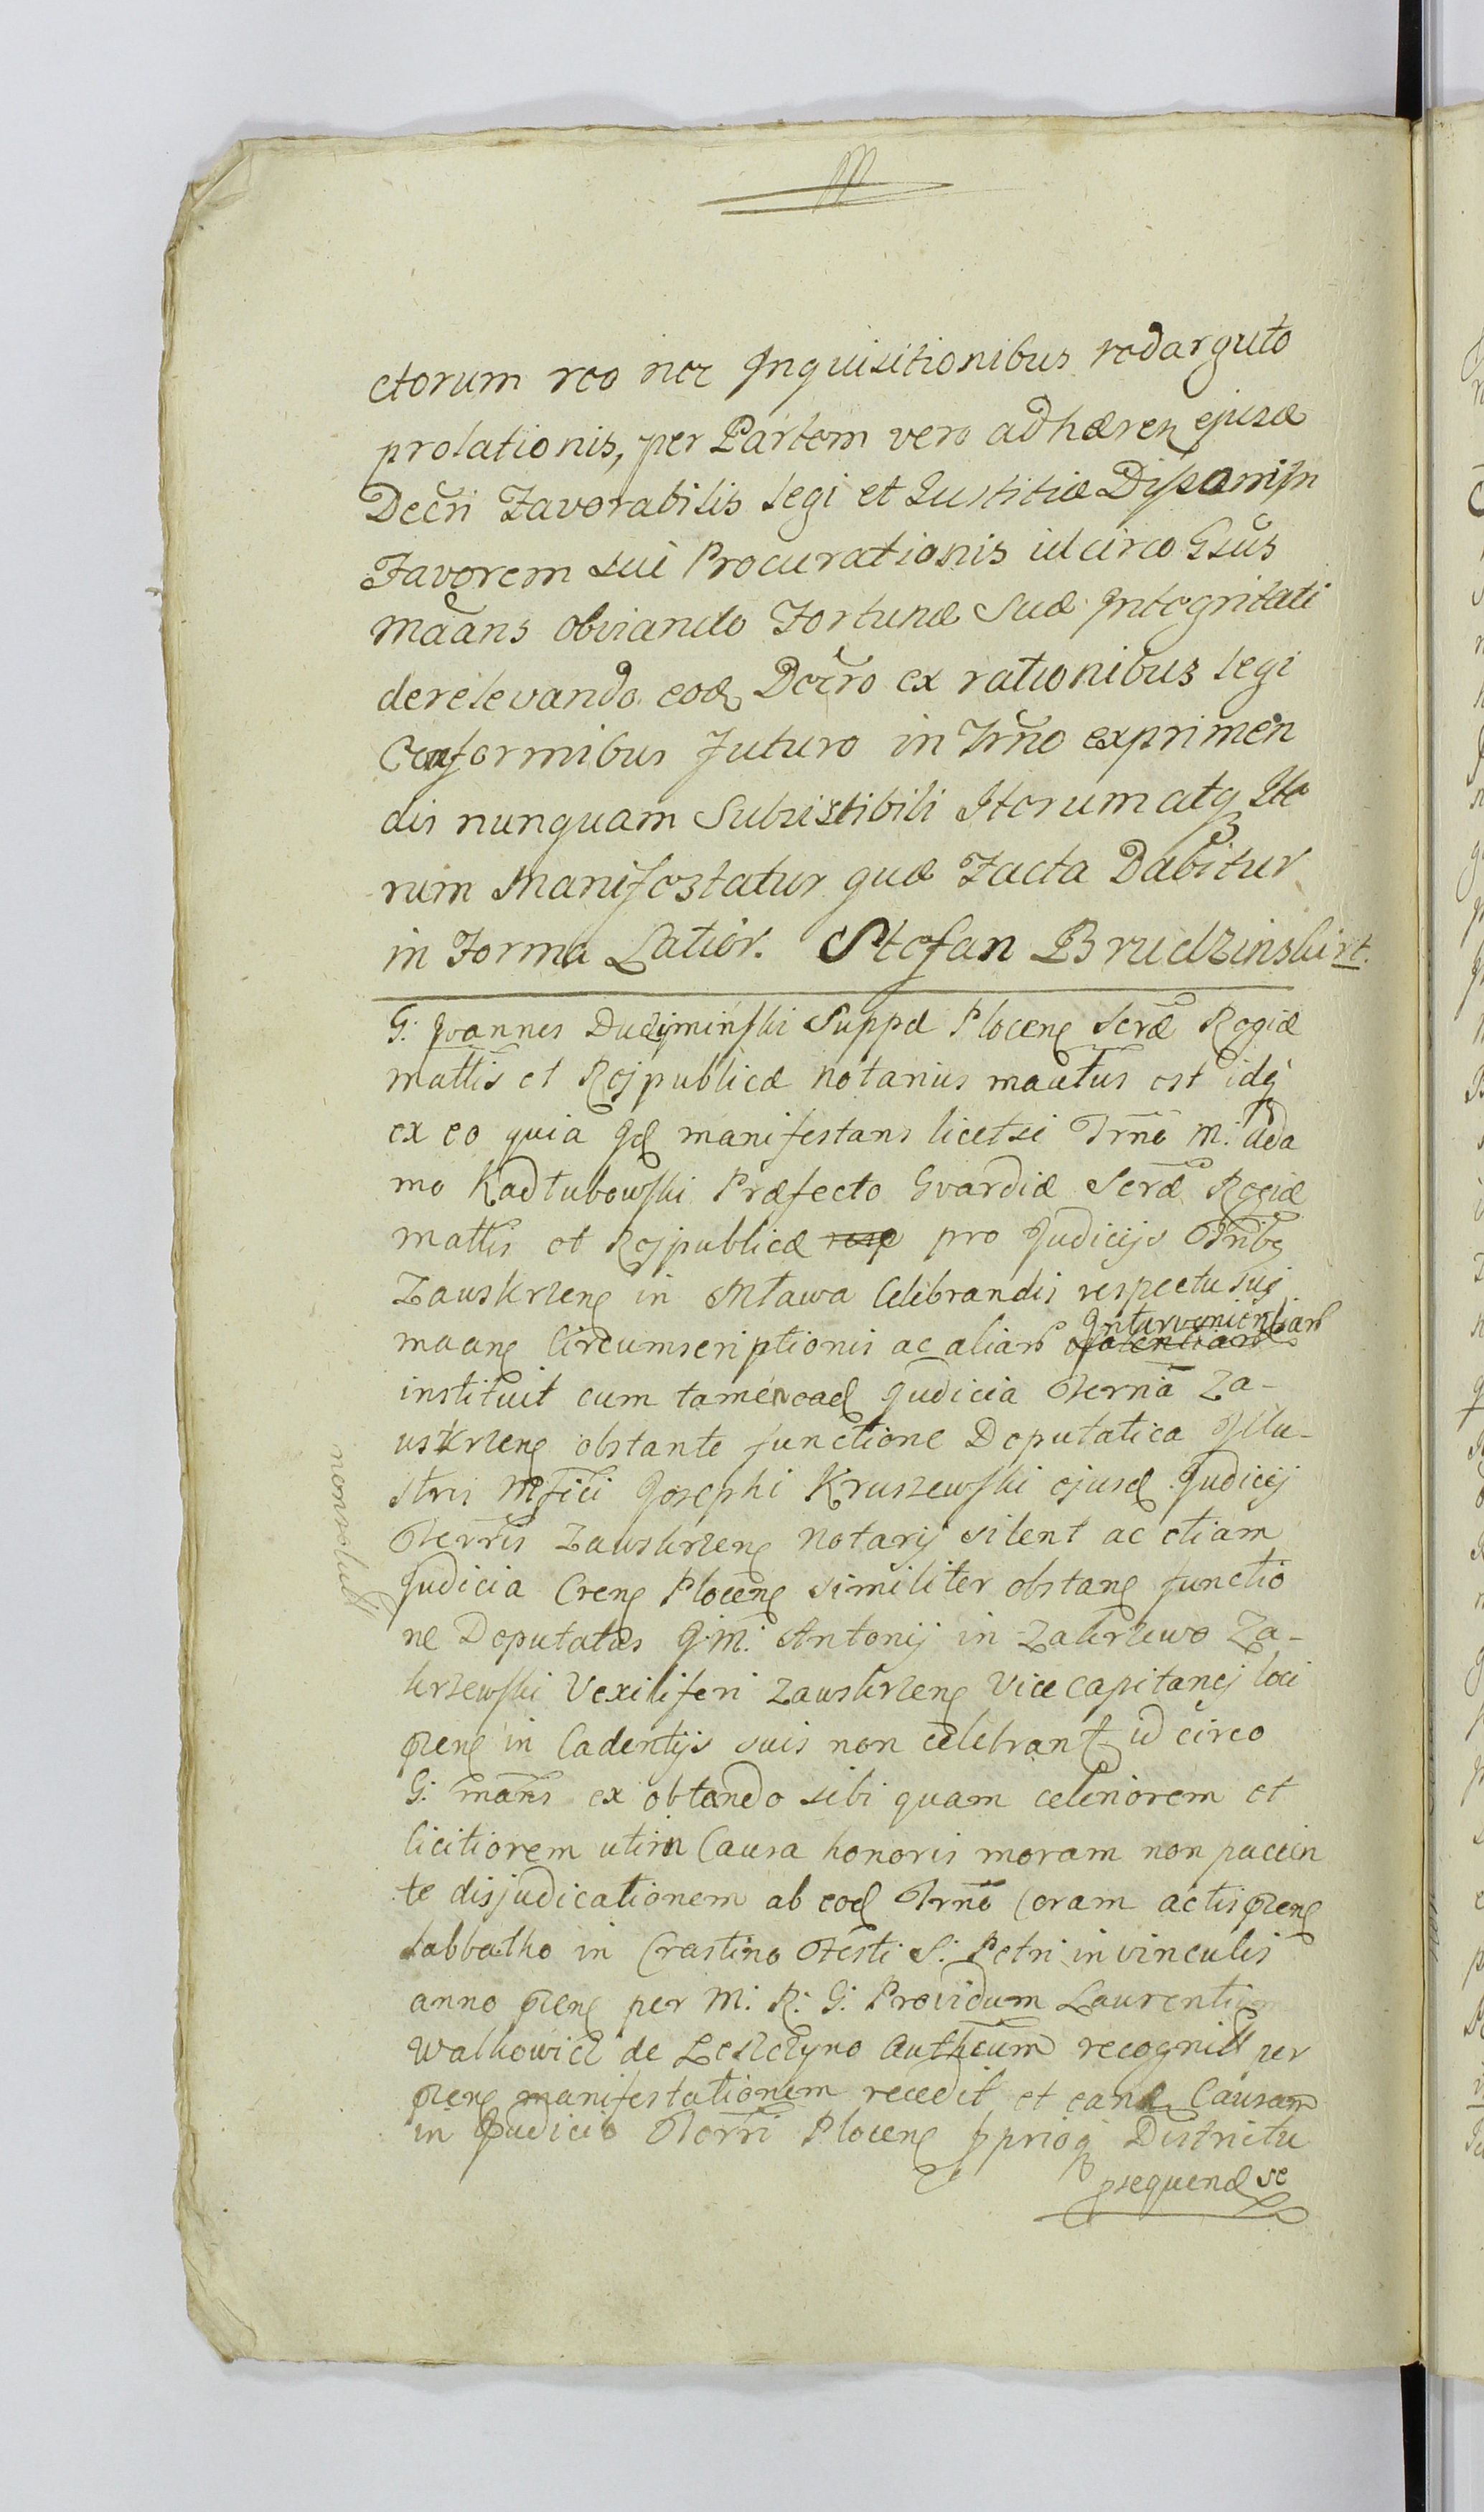 ctorum reo nec Inquisitionibus redarguto
prolationis, per Partem vero adhæren ejusd
Decri Favorabilis legi et Iustitiæ Disponisn
Favorem sui Procurationis idcirco Gsus
maans obviando Fortunæ Suæ Integritati
derelevando eod Decro ex rationibus legi
Conformibus Futuro in Trno exprimen
dis nunquam Subsistibili Iterum atq Ite
rum Manifestatur quæ Facta Dabitur
in Forma Latior. Stefan Brudzinski rt.
G: Ioannes Duczyminski Suppd Plocens Seræ Regiæ
mattis et Rejpublicæ notarius mantus est idq
ex eo quia Gd manifestans licet sei Trno M: Ada
mo Kadłubowski Præfecto Gvardiæ Seræ Regiæ
mattis et Rejpublicæ pro Judicijs Tribs
Zauskrzens in Mława Celebrandis respectu sui
maans Circumscriptionis ac aliars Intervenientiars
instituit cum tamen ead Judicia Terria Za-
uskrzens obstante functione Deputatica Illu-
stris Mfici Josephi Kruszewski ejusd Judicij
Terris Zauskrzens Notarij silent ac etiam
Judicia Crens Plocens similiter obstans functio
ne Deputatus G: M: Antonij in Zakrzewo Za-
krzewski Vexiliferi Zauskrzens Vice Capitanej loci
præns in Cadentijs suis non celebrant idcirco
G: mans ex obtando sibi quam celeriorem et
licitiorem uti in Causa honoris moram non pacien
te disjudicationem ab eod Trno Coram actis præns
sabbatho in Crastino Festi S: Petri in vinculis
anno præns per M: R: G: Providum Laurentium
Walkowicz de Leszczyno Authcum recognitt per
præns manifestationem recedit et eand Causam
in Judicio Terri Plocens pprioq Districtu
psequend se
nonsolut